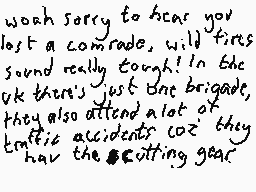 woah sorry to hear you
lost a comrade, wild fires
sound really tough! In the
uk there's just one brigade,
they also attend a lot of
traffic accidents coz they
hav the cutting gear